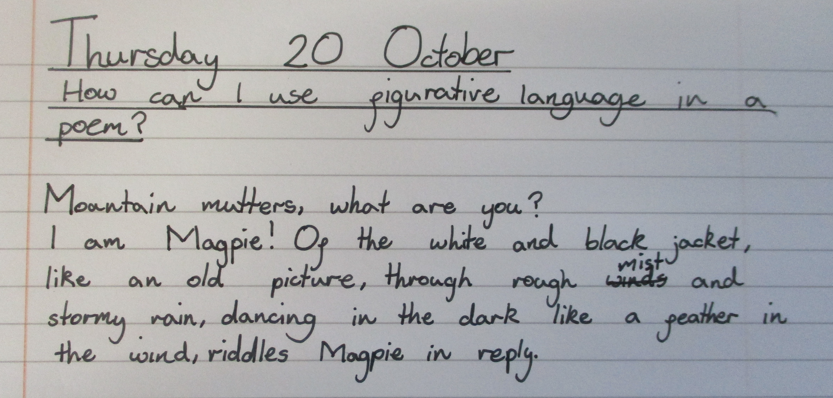 Thursday 20 October
How can I use figurative language in a
poem?
Mountain mutters, what are you?
I am Magpie! Of the white and black jacket,
like an old picture, through rough winds mist and
stormy rain, dancing in the dark like a feather in
the wind, riddles Magpie in reply.